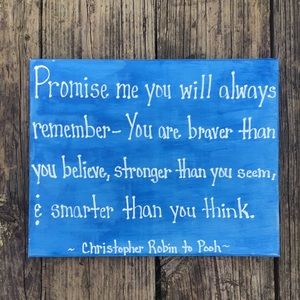 Promise me you will always
remember- You are braver than
you believe, stronger than you seem,
& smarter than you think.
~ Christopher Robin to Pooh~